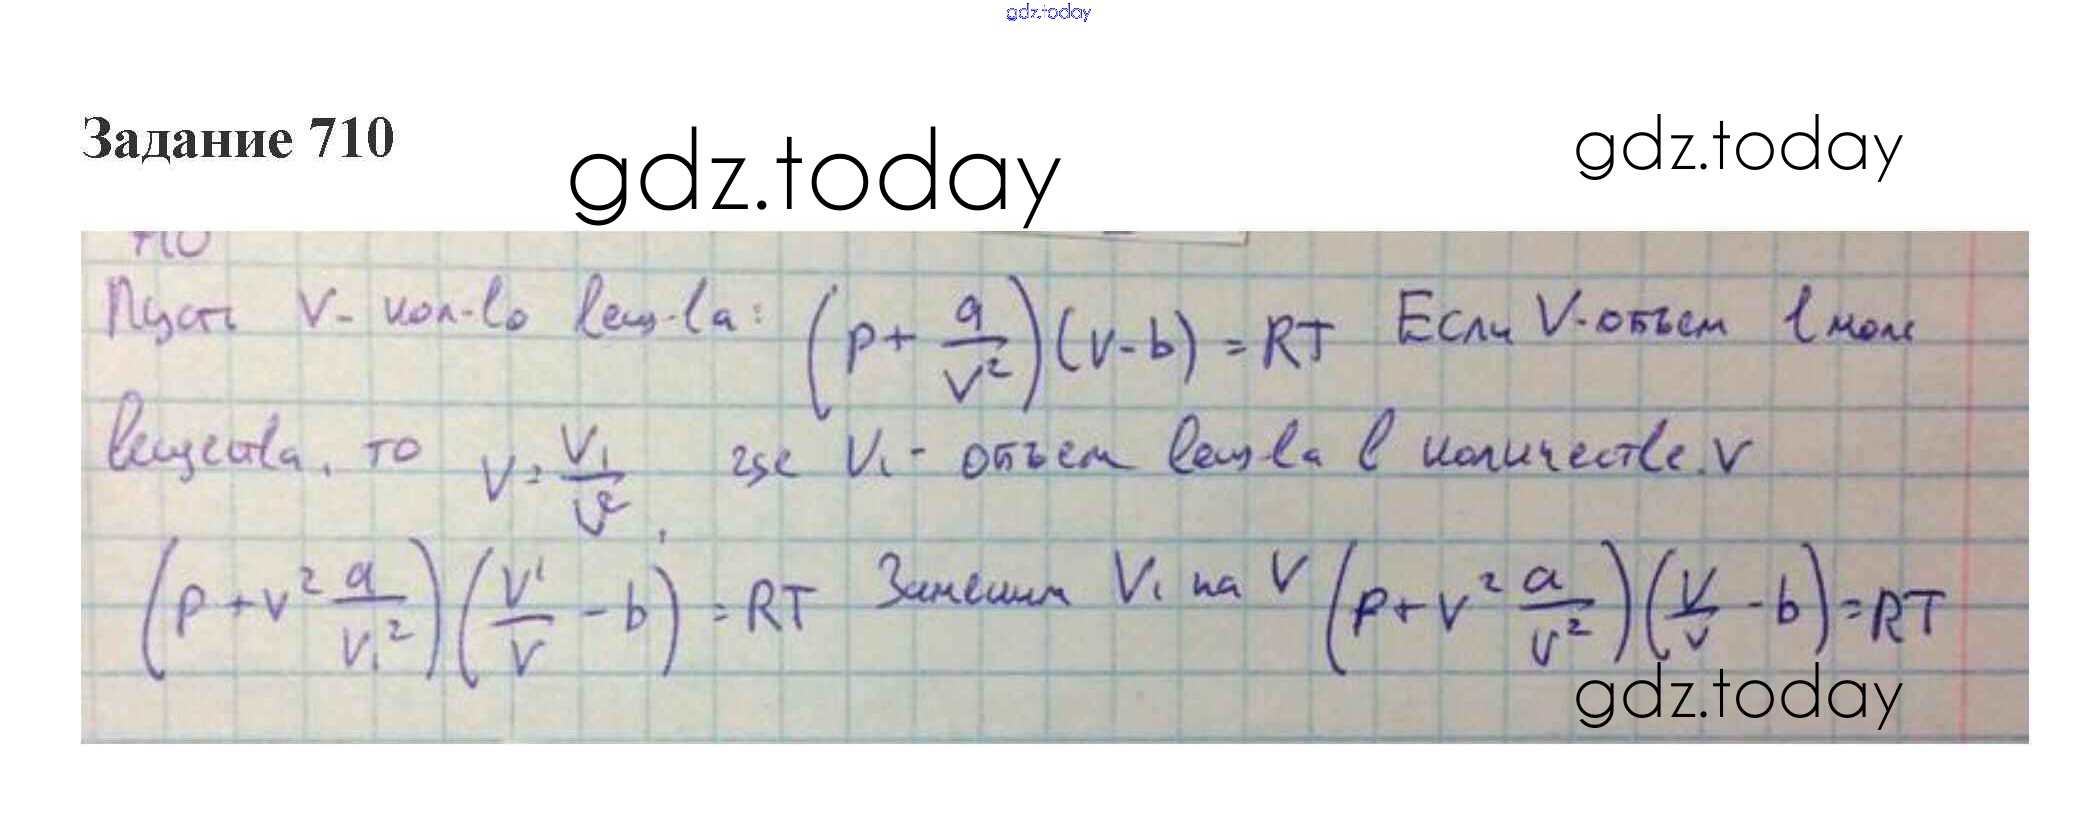 gdz.today
Задание 710
gdz.today
gdz.today
710
Пусть ν - кол-во вещ-ва: (p + a/V²)(V - b) = RT Если V - объем 1 моль
вещества, то V = V₁/ν², где V₁ - объем вещ-ва в количестве ν
(p + ν² a/V₁²)(V¹/ν - b) = RT Заменим V₁ на V (p + ν² a/V²)(V/ν - b) = RT
gdz.today